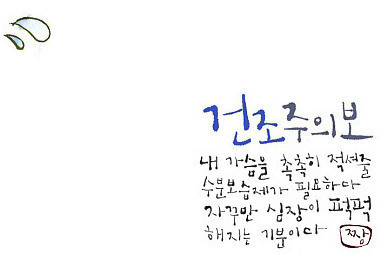 건조주의보
내 가슴을 촉촉히 적셔줄
수분보습제가 필요하다
자꾸만 심장이 퍽퍽
해지는 기분이다 짱